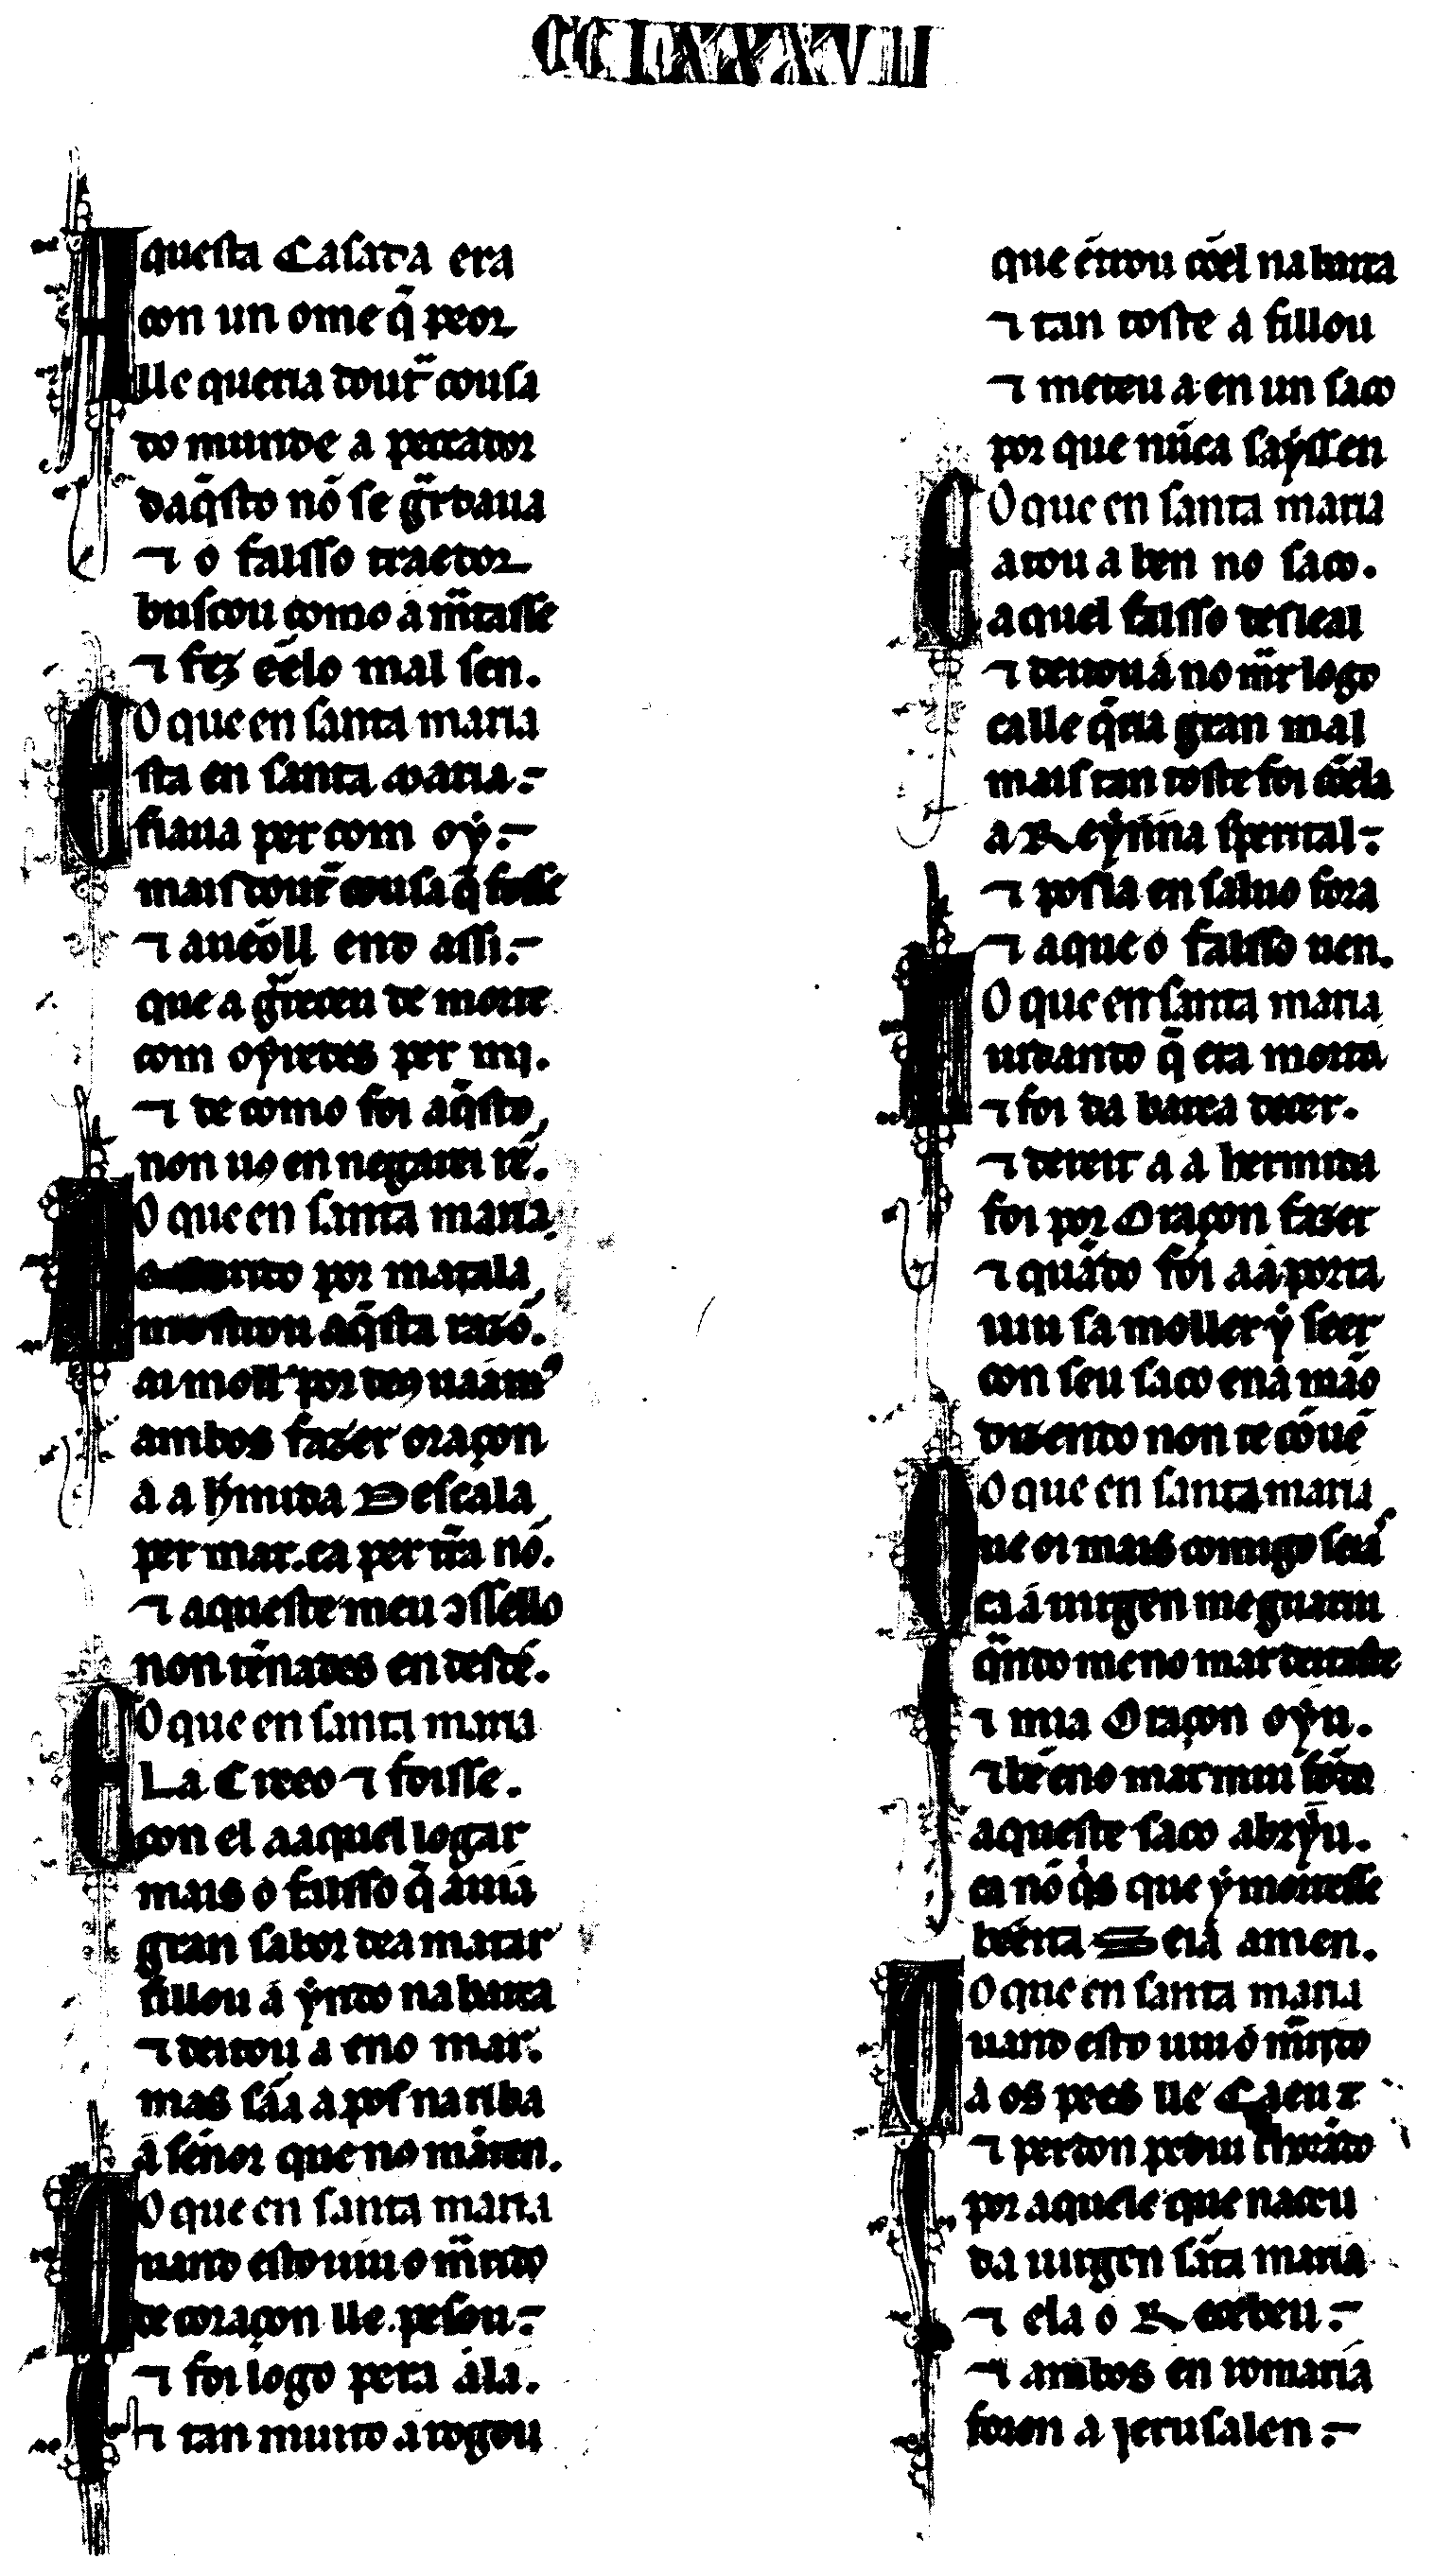 CCLXXXVII
Aquesta Casada era
con un ome q̃ peor
lle queria dout̃ cousa
do munde a peccador
daq̃sto nõ se g̃rdaua
⁊ o falsso traedor
buscou como a m̃tasse
⁊ fez eẽlo mal sen.
O que en santa maria
Esta en santa Maria:-
fiaua per com oẏ:-
mais dout̃ cousa q̃ fosse
⁊ aueóll end assi:-
que a g̃receu de morte
com oẏredes per mi.
⁊ de como foi aq̃sto,
non uos en negarei rẽ.
O que en santa maria
por matala,
mostrou aq̃sta razõ.
ai moll̃ por deus uaam⁹
ambos fazer oraçon
a a h̃mida Descala
per mar. ca per t̃ra nõ.
⁊ aqueste meu ɔssello
non tẽnades en desdé.
O que en santa maria
ELa Creeo ⁊ foisse.
con el aaquel logar
mais o falsso q̃ auia
gran sabor dea matar
fillou á ẏndo na barca
⁊ deitou a eno mar.
mas sãa apos na riba
a sẽnor que no mãten.
O que en santa maria
Quand esto uiu o m̃rido
de coraçon lle pesou:-
⁊ foi logo pera ala.
⁊ tan muito a rogou
que ẽtrou cõel na barca
⁊ tan toste a fillou
⁊ meteu a en un saco
por que nũca saẏssen
O que en santa maria
E atou a ben no saco.
aquel falsso desleal
⁊ deitou á no m̃r logo
calle q̃ria gran mal
mais tan toste foi cõela
a Reẏnna sperital:-
⁊ posla en saluo fora
⁊ aque o falsso uen.
O que en santa maria
Uidando q̃ era morta
⁊ foi da barca decer.
⁊ dereit a a hermida
foi por Oraçon fazer
⁊ quãdo foi aa porta
uiu sa moller ẏ seer
con seu saco ena mão
dizendo non te cõuẽ
O que en santa maria
Que oi mais comigo seiaˢ
ca á uirgen me guariu
q̃ndo me no mar deitaste
⁊ mia Oraçon oẏu.
⁊ bẽ eno mar mui fõdo
aqueste saco abrẏu.
ca nõ q̃s que ẏ moresse
bẽeita Seia amen.
O que en santa maria
Quand esto uiu ó m̃rido
a os pees lle Caeu ⁊
⁊ perdon pediu chorãdo
por aquele que naceu
da uirgen sãta maria
⁊ ela o Recebeu:-
⁊ ambos en romaria
foron a Jerusalen:-